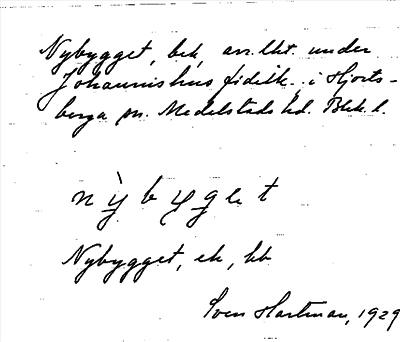 Nybygget, bek, av. lht. under
Johannishus fideik., i Hjorts-
berga sn. Medelstads hd. Blek. l.
nỳbygget
Nybygget, ek, kb
Sven Hartman, 1929